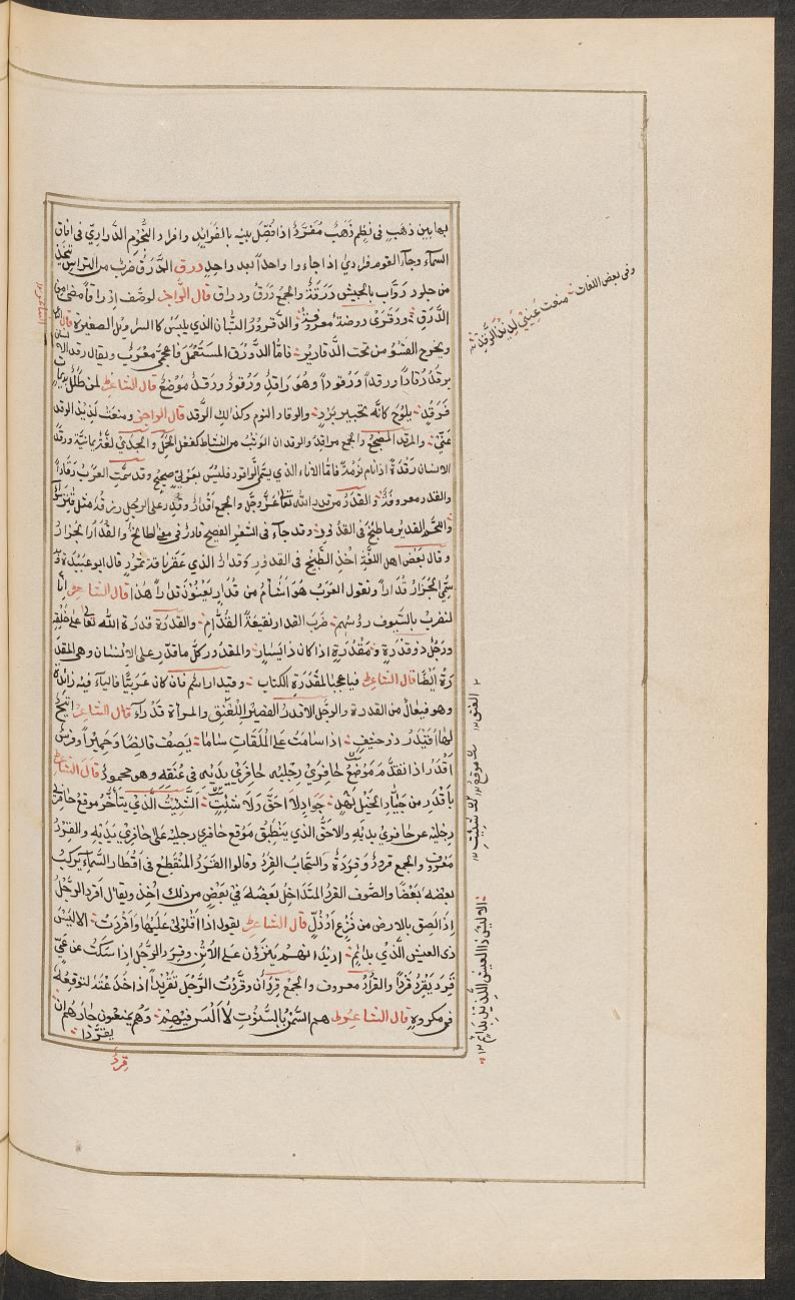 بها بين ذهب فى نظم ذهب مفرد اذا فصل بينه بالفرايد وافراد النجوم الدرارى فى افاق
السمآء وجآء القوم فرادى اذا جاءوا واحداً بعد واحدٍ درق الدرق ضرب من التراس تتخذ
من جلود دوابّ بالحبش درقة والجمع درق ودراق قال الراجز لو صف
الدرق ودرقرى روضة معروفة والدقرور التبان الذى يلبس كالسراويل الصغيرة قال
ويخرج الفسو من تحت الدقارير فاما الدورق المستعمل فاعجمى معرب ويقال رقد
يرقد رقاداً ورقداً ورقوداً وهو راقد ورقود ورقد موضع قال الشاعر لمن طلل
فرقد يلوح كانه تحبير برد والرقاد النوم وكذلك الرقد قال الراجز ومنعت لذيذ الرقد
عنى والمرقد المضجع والجمع مراقد والرقدان الوثب من النشاط كفعل الحمل والجدى لغة يمانية ورقد
الانسان رقدة اذا نام نومة فاما الاناء الذى يسمى الراقود فليس بعربى صحيح وقد سمت العرب رقاداً
والقدر معروفة والقدر من قدر الله تعالى عز وجل والجمع اقدار وقدر على الرجل رزقه مثل قتر
واللحم القدير ما طبخ فى القدور وقد جآء فى الشعر الفصيح قادر فى معنى طابخ والقدار الجزار
وقال بعض اهل اللغة اخذ الطبخ فى القدور كقدار الذى عقر ناقة ثمود قال ابو عبيدة
سمى الجزار قداراً وتقول العرب هو أشأم من قدار يعنون قداراً هذا قال الشاعر انا
لنضرب بالسيوف رؤسهم ضرب القدار نقيعة القدام والقدرة قدرة الله تعالى على خلقه
ورجل ذو قدرة ومقدرة اذا كان ذا يسار والمقدور كل ما قدر على الانسان وهى المقد
رة ايضا قال الشاعر فيا عجبا لمقدرة الكتاب وقيدار اسم فان كان عربيا فالياء فيه زائدة
وهو فيعال من القدرة والرجل الاقدر القصير العنق والمراة قدرآء قال الشاعر اتيح
لها اقيدر ذو حشيف اذا سامت على الملقات ساما يصف قانصا وحميراً وفرس
اقدر اذا تقدم موضع حافرى رجليه حافرى يديه فى عنقه وهو محمود قال الشاعر
باقدر من جياد الخيل نهد جواد لا احق ولا شئيت الشئيت الذى يتأخر موقع حافرى
رجليه عن حافرى يديه والاحق الذى ينطبق موقع حافرى رجليه على حافرى يديه والقرد
معروف والجمع قرود وقردة والسحاب القرد وقالوا القرد المتقطع فى اقطار السمآء يركب
بعضه بعضا والصوف القرد المتداخل بعضه فى بعض من ذلك اخذ ويقال أقرد الرجل
اذا لصق بالارض من فزع او ذل قال الشاعر يقول اذا اقلولى عليها واقردت الا ليس
ذى العيش الذى بدائم اينزون على الاتن وقرد الرجل اذا سكت عن عى
قرد يقرد قرداً والقراد معروف والجمع قردان وقردت الرجل تقريداً اذا خدعته لتوقعه
فى مكروه قال الشاعر هم السمن بالسنوت لا ألس فيهم وهم يمنعون جارهم ان
يقردا
قرد
وفى بعض اللغات منعت عينى لذيذ الرقد
العنق
موقع
شئيت
الا ليت ذا العيش اللذيذ بدائم